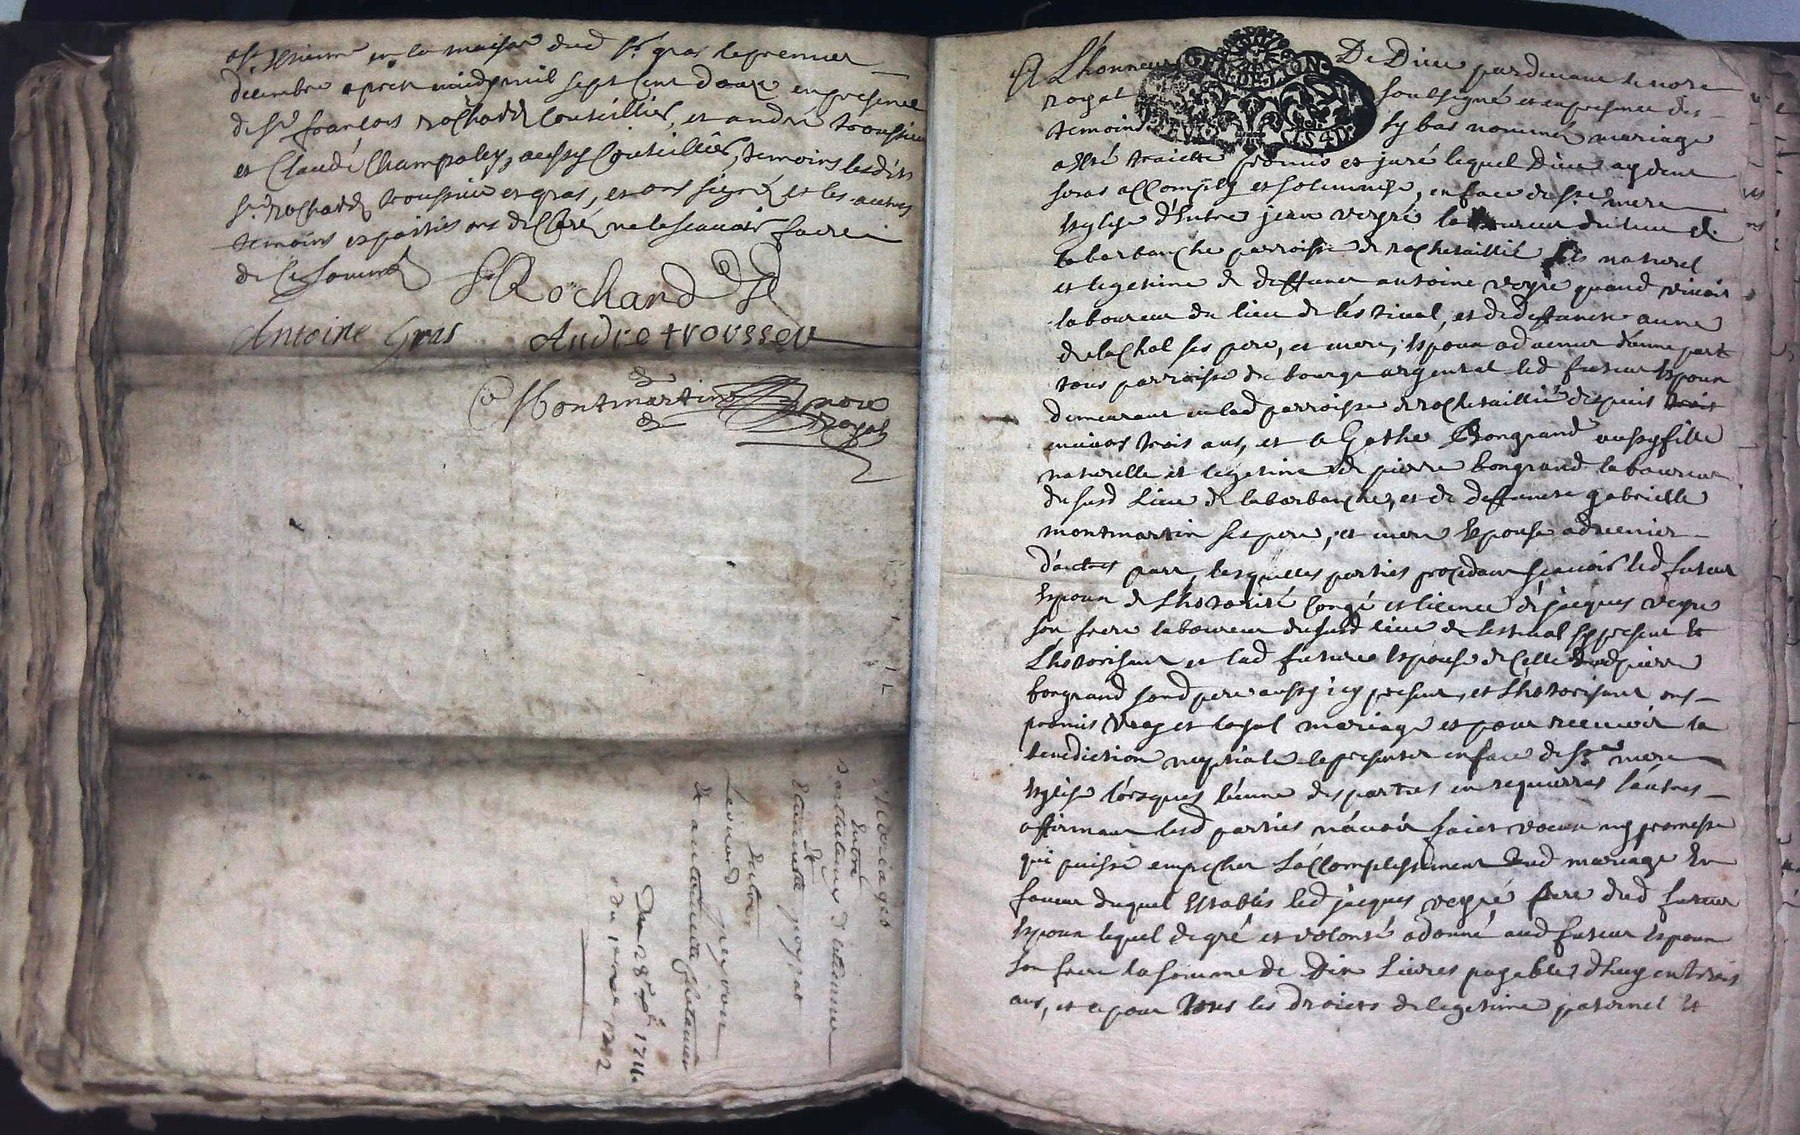 et Estienne en la maison dud Sr gras le premier
decembre apres midy mil sept cent douze en presence
de Sr françois rochard Coutellier, et andré trousseu
et Claude Champaley, aussy Coutelliers, temoins lesdits
Srs rochard trousseu et gras, et ont signé et les autres
temoins et parties ont declaré ne le scauoir faire
de ce sommés
Rochard
Antoine Gras Andre trousseu
Montmartin nore
royal
Mariages
Entre
barthelemy d'estienne
Et
Et entre
Leonard peyron
Et antoinette
Du 28e 1711
du 1er 1712
A L'honneur De Dieu pardeuant le nore
royal soubsigné et en presence des
temoins cy bas nommés mariage
a esté traicté promis et juré lequel Dieu aydent
sera accomply et solemnisé, en face de Ste mere
Esglise d'Entre jean veyré laboureur du lieu de
labarbanche parroisse de rochetaillié fils naturel
et legitime de deffunct antoine veyre quand viuoit
laboureur du lieu de léstiual, et de deffuncte anne
delachal ses pere, et mere, Espoux aduenir d'une part
tous parroisse du bourg argental led futeur Espoux
demeurant en lad parroisse de rochetaillié despuis
enuiron trois ans, et a Gathe Bongrand aussy fille
naturelle et legitime de pierre bongrand laboureur
du susd Lieu de labarbanche, et de deffuncte gabrielle
montmartin ses pere, et mere Espouse aduenir
d'autres part, lesquelles parties procedant scauoir led futeur
Espoux de L'hotorité Congé et licence de jacques veyre
son frere laboureur du susd lieu de lestiual icy present Et
L'hotorisant et lad future Espouse de Celle dud pierre
bongrand sond pere aussy icy present, et L'hotorisant ont
promis vray et loyal mariage et pour receuoir la
benediction nuptiale se presenter en face de Ste mere
Esglise lorsques l'eune des parties en requerras l'autres
affirmant lesd parties n'auoir faict voeux ny promesse
qui puisse empecher L'accomplissement dud mariage En
faueur duquel Estably led jacques veyré frere dud futeur
Espoux lequel de gré et volonté a donné aud futeur Espoux
son frere la somme de Dix Liures payables d'huy en trois
ans, et ce pour tous les droicts de legitime paternel Et